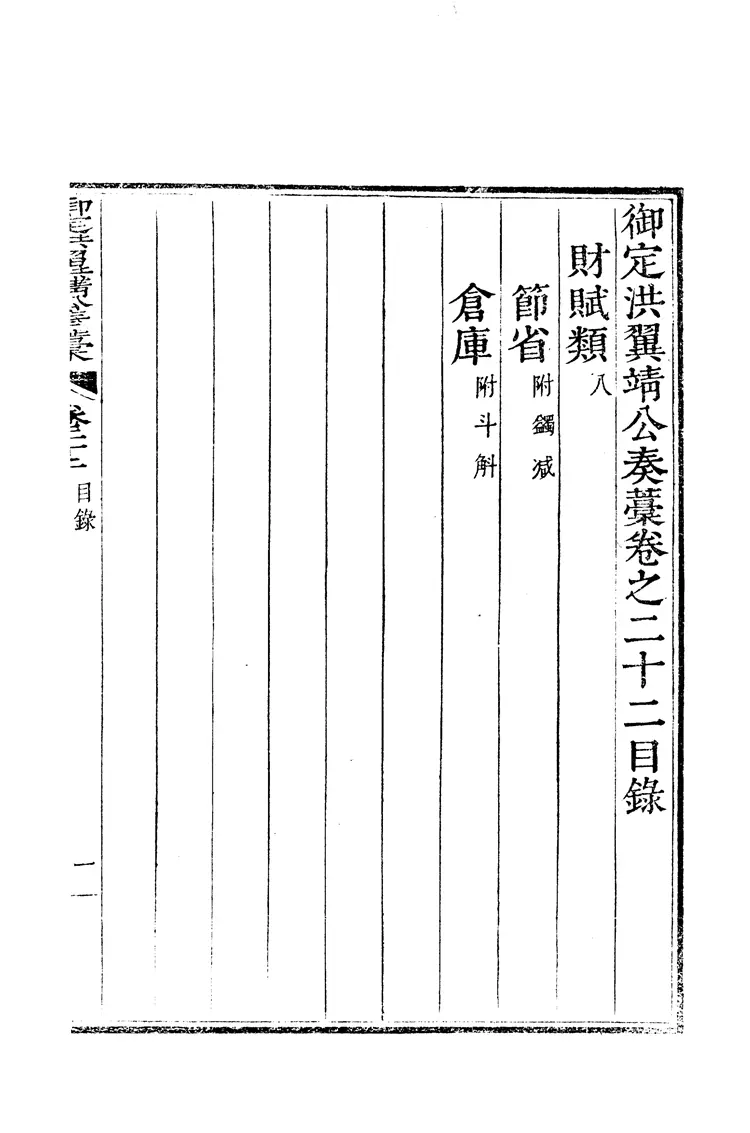 御定洪翼靖公奏藁卷之二十二目錄
財賦類八
節省附蠲减
倉庫附斗斛
御定洪翼靖公奏藁 卷二十二 目錄 一